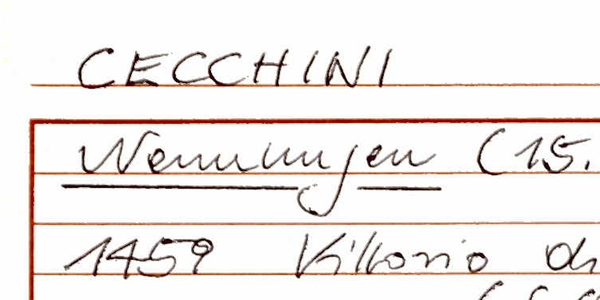 CECCHINI
Nennungen (15.
1459 Vittorio di